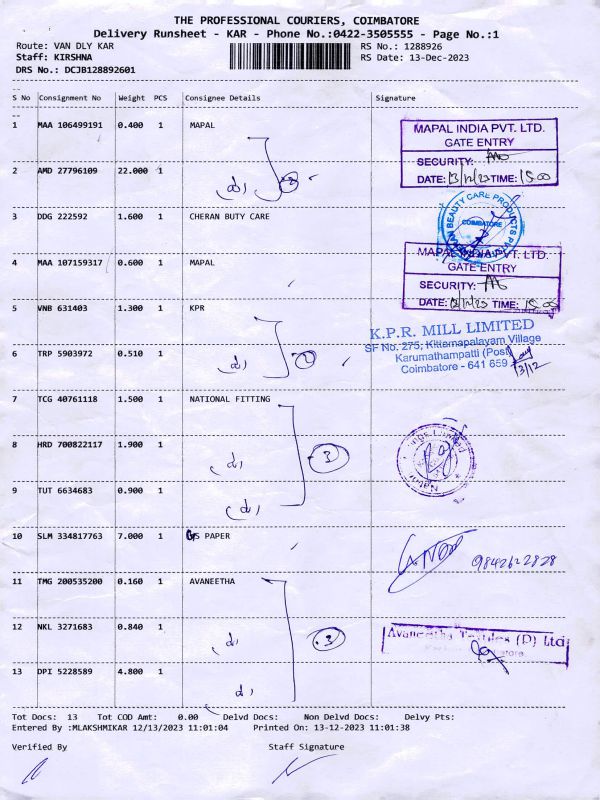 THE PROFESSIONAL COURIERS, COIMBATORE
Delivery Runsheet - KAR - Phone No.:0422-3505555 - Page No.:1
Route: VAN DLY KAR RS No.: 1288926
Staff: KIRSHNA RS Date: 13-Dec-2023
DRS No.: DCJB128892601
S No Consignment No Weight PCS Consignee Details Signature
1 MAA 106499191 0.400 1 MAPAL
MAPAL INDIA PVT. LTD.
GATE ENTRY
SECURITY:
DATE: 13/12/23 TIME: 15:00
2 AMD 27796109 22.000 1
3 DDG 222592 1.600 1 CHERAN BUTY CARE
BEAUTY CARE PRODUCTS
COIMBATORE
4 MAA 107159317 0.600 1 MAPAL
MAPAL INDIA PVT. LTD.
GATE ENTRY
SECURITY:
DATE: 13/12/23 TIME:
5 VNB 631403 1.300 1 KPR
K.P.R. MILL LIMITED
SF No. 275, Kittampalayam Village
Karumathampatti (Post)
Coimbatore - 641 659
13/12
6 TRP 5903972 0.510 1
2
7 TCG 40761118 1.500 1 NATIONAL FITTING
8 HRD 700822117 1.900 1
3
9 TUT 6634683 0.900 1
10 SLM 334817763 7.000 1 GS PAPER
9842622828
11 TMG 200535200 0.160 1 AVANEETHA
12 NKL 3271683 0.840 1
3
Avaneetha Textiles (P) Ltd
13 DPI 5228589 4.800 1
Tot Docs: 13 Tot COD Amt: 0.00 Delvd Docs: Non Delvd Docs: Delvy Pts:
Entered By :MLAKSHMIKAR 12/13/2023 11:01:04 Printed On: 13-12-2023 11:01:38
Verified By Staff Signature